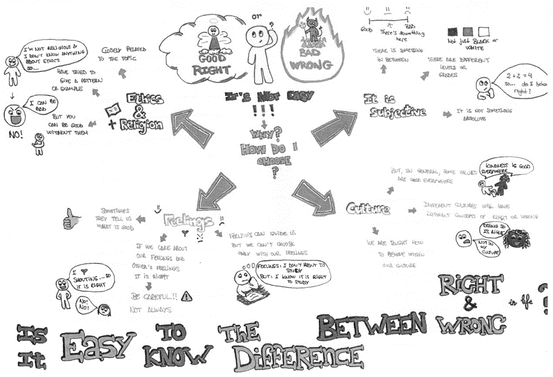 or
GOOD
RIGHT
BAD
WRONG
It's Not EASY
!!!
WHY?
HOW DO I
CHOOSE
?
I'M NOT RELIGIOUS &
I DON'T KNOW ANYTHING
ABOUT ETHICS
CLOSELY RELATED
TO THE TOPIC
HAVE TRIED TO
GIVE A PATTERN
OR EXAMPLE
Ethics
&
+ Religion
I CAN BE
BAD
NO!
BUT YOU
CAN BE GOOD
WITHOUT THEM
GOOD
IT
BAD
There's something
here
THERE IS SOMETHING
IN BETWEEN
Not just BLACK or
WHITE
THERE ARE DIFFERENT
LEVELS OR
GRADES
2+2=4
right!
It is
Subjective
IT IS NOT SOMETHING
ABSOLUTE
Feelings
SOMETIMES
THEY TELL US
WHAT IS GOOD
IF WE CARE ABOUT
OUR FEELINGS OR
OTHER'S FEELINGS
IT IS RIGHT
BE CAREFUL!!
NOT ALWAYS
I ♥
SHOUTING... SO
IT IS RIGHT
NO!
NO!
FEELINGS CAN GUIDE US
BUT WE CAN'T DECIDE
ONLY WITH OUR FEELINGS
FEELINGS: I DON'T WANT TO
STUDY
BUT: I KNOW IT IS RIGHT
TO STUDY
Culture
BUT, IN GENERAL, SOME VALUES
ARE GOOD EVERYWHERE
KINDNESS IS GOOD
EVERYWHERE
DIFFERENT CULTURES WILL HAVE
DIFFERENT CONCEPTS OF RIGHT OR WRONG
NOT IN
MY
CULTURE
WE ARE TAUGHT HOW
TO BEHAVE WITHIN
OUR CULTURE
IS
It
EASY
TO
KNOW
THE
DIFFERENCE
BETWEEN
RIGHT
&
WRONG
in life
?